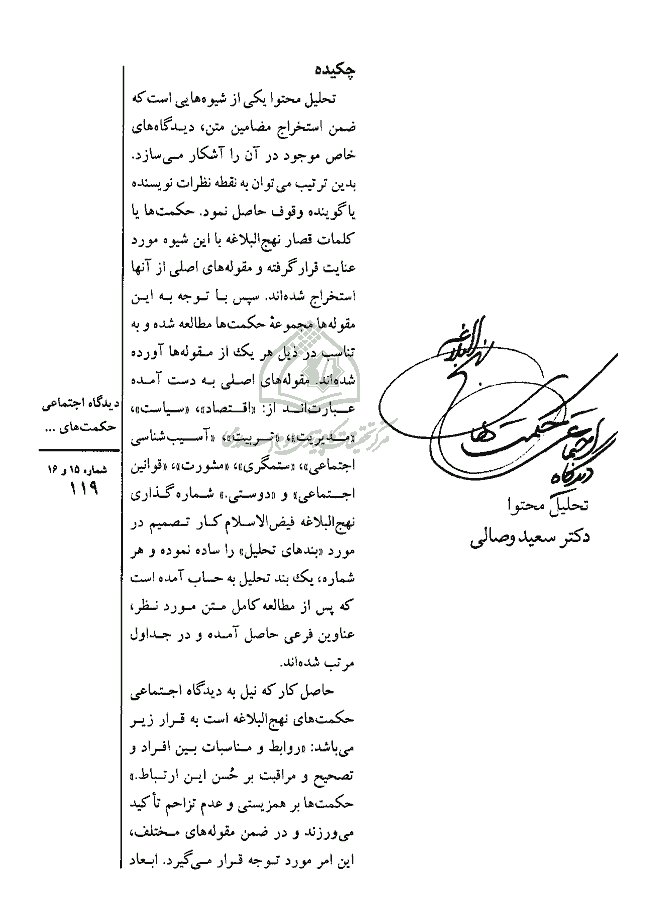 دیدگاه اجتماعی
حکمت‌های
نهج البلاغه
تحلیل محتوا
دکتر سعید وصالی
چکیده
تحلیل محتوا یکی از شیوه‌هایی است که
ضمن استخراج مضامین متن، دیدگاه‌های
خاص موجود در آن را آشکار می‌سازد.
بدین ترتیب می‌توان به نقطه نظرات نویسنده
یا گوینده وقوف حاصل نمود. حکمت‌ها یا
کلمات قصار نهج‌البلاغه با این شیوه مورد
عنایت قرار گرفته و مقوله‌های اصلی از آنها
استخراج شده‌اند. سپس با توجه به این
مقوله‌ها مجموعهٔ حکمت‌ها مطالعه شده و به
تناسب در ذیل هر یک از مقوله‌ها آورده
شده‌اند. مقوله‌های اصلی به دست آمده
عبارت‌اند از: «اقتصاد»، «سیاست»،
«مدیریت»، «تربیت»، «آسیب‌شناسی
اجتماعی»، «ستمگری»، «مشورت»، «قوانین
اجتماعی» و «دوستی.» شماره گذاری
نهج‌البلاغه فیض‌الاسلام کار تصمیم در
مورد «بندهای تحلیل» را ساده نموده و هر
شماره، یک بند تحلیل به حساب آمده است
که پس از مطالعه کامل متن مورد نظر،
عناوین فرعی حاصل آمده و در جداول
مرتب شده‌اند.
حاصل کار که نیل به دیدگاه اجتماعی
حکمت‌های نهج‌البلاغه است به قرار زیر
می‌باشد: «روابط و مناسبات بین افراد و
تصحیح و مراقبت بر حُسن این ارتباط.»
حکمت‌ها بر همزیستی و عدم تزاحم تأکید
می‌ورزند و در ضمن مقوله‌های مختلف،
این امر مورد توجه قرار می‌گیرد. ابعاد
دیدگاه اجتماعی
حکمت‌های ...
شماره ۱۵ و ۱۶
۱۱۹